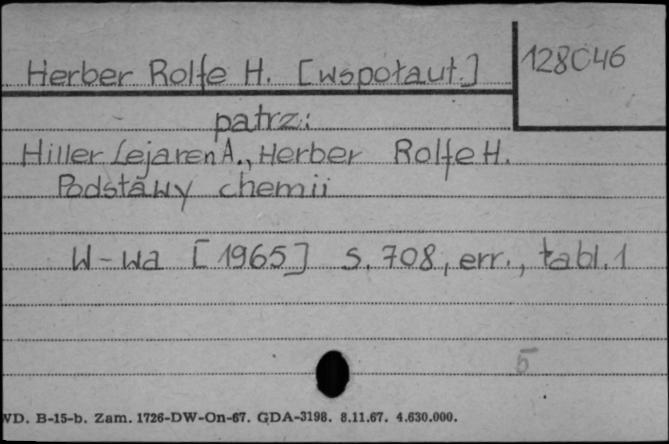 Herber Rolfe H. [współaut.] 128046
patrz:
Hiller Lejaren A., Herber Rolfe H.
Podstawy chemii
W-wa [1965] s. 708, err., tabl. 1
5
VD. B-15-b. Zam. 1726-DW-On-67. GDA-3198. 8.11.67. 4.630.000.